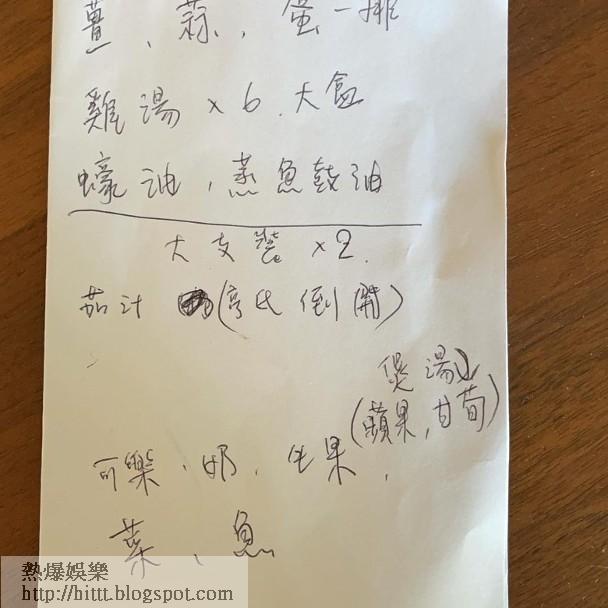 薑、蒜,蛋一排
雞湯 x 6. 大盒
蠔油,蒸魚鼓油
大支裝 x 2.
茄汁 (亨氏 倒開)
煲湯
(蘋果,甘荀)
可樂、奶,生果,
菜、魚
熱爆娛樂
http://hittt.blogspot.com/